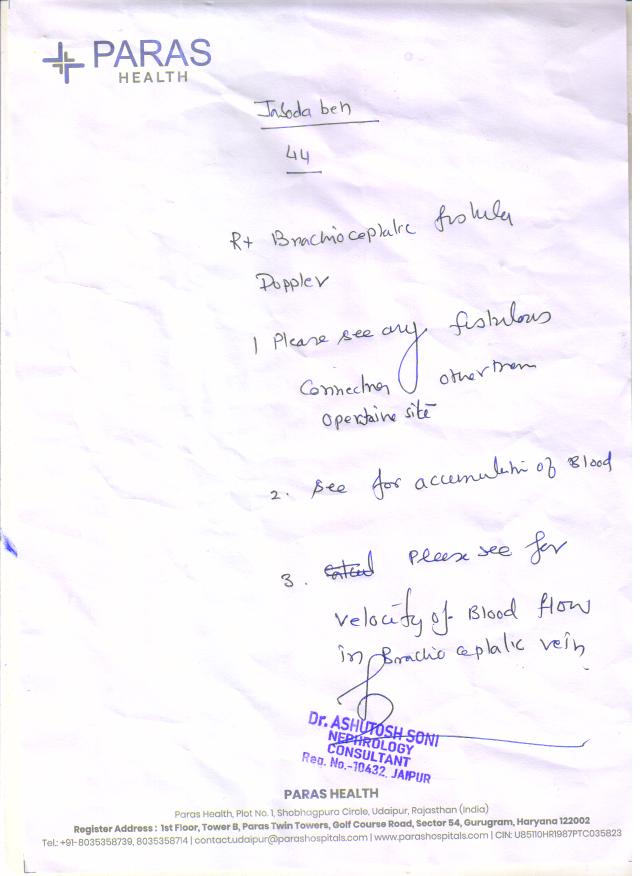 PARAS
HEALTH
Jasoda ben
44
Rt Brachiocephalic fistula
Doppler
1 Please see any fistulous
Connection other than
Opertaive site
2. See for accumulation of Blood
3. Please see for
velocity of Blood flow
in Brachio cephalic vein
Dr. ASHUTOSH SONI
NEPHROLOGY
CONSULTANT
Reg. No.-10432, JAIPUR
PARAS HEALTH
Paras Health, Plot No. 1, Shobhagpura Circle, Udaipur, Rajasthan (India)
Register Address : 1st Floor, Tower B, Paras Twin Towers, Golf Course Road, Sector 54, Gurugram, Haryana 122002
Tel.: +91-8035358739, 8035358714 | contact.udaipur@parashospitals.com | www.parashospitals.com | CIN: U85110HR1987PTC035823